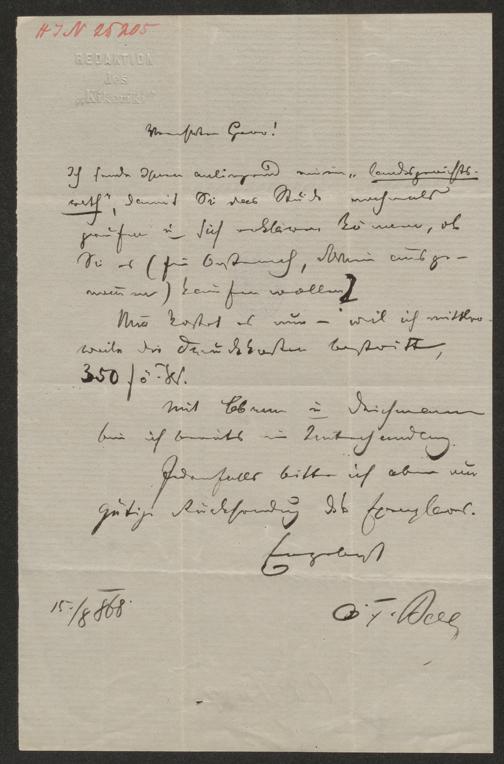 H I N 25205
REDAKTION
des
„Kikeriki“
Verehrter Herr!
Ich sende Ihnen anliegend meinen „Landesgerichts-
rath“, damit Sie das Stück nochmals
prüfen u sich erklären können, ob
Sie es (für Österreich, Wien ausge-
nommen) kaufen wollen?
Nur kostet es nun – weil ich mittler-
weile die Druckkosten bestritt,
350 f ö. W.
Mit u Deichmann
bin ich bereits in Unterhandlung.
Jedenfalls bitte ich aber um
gütige Rücksendung des Exemplares.
Ergebenst
O. F. Berg
15./8 868.